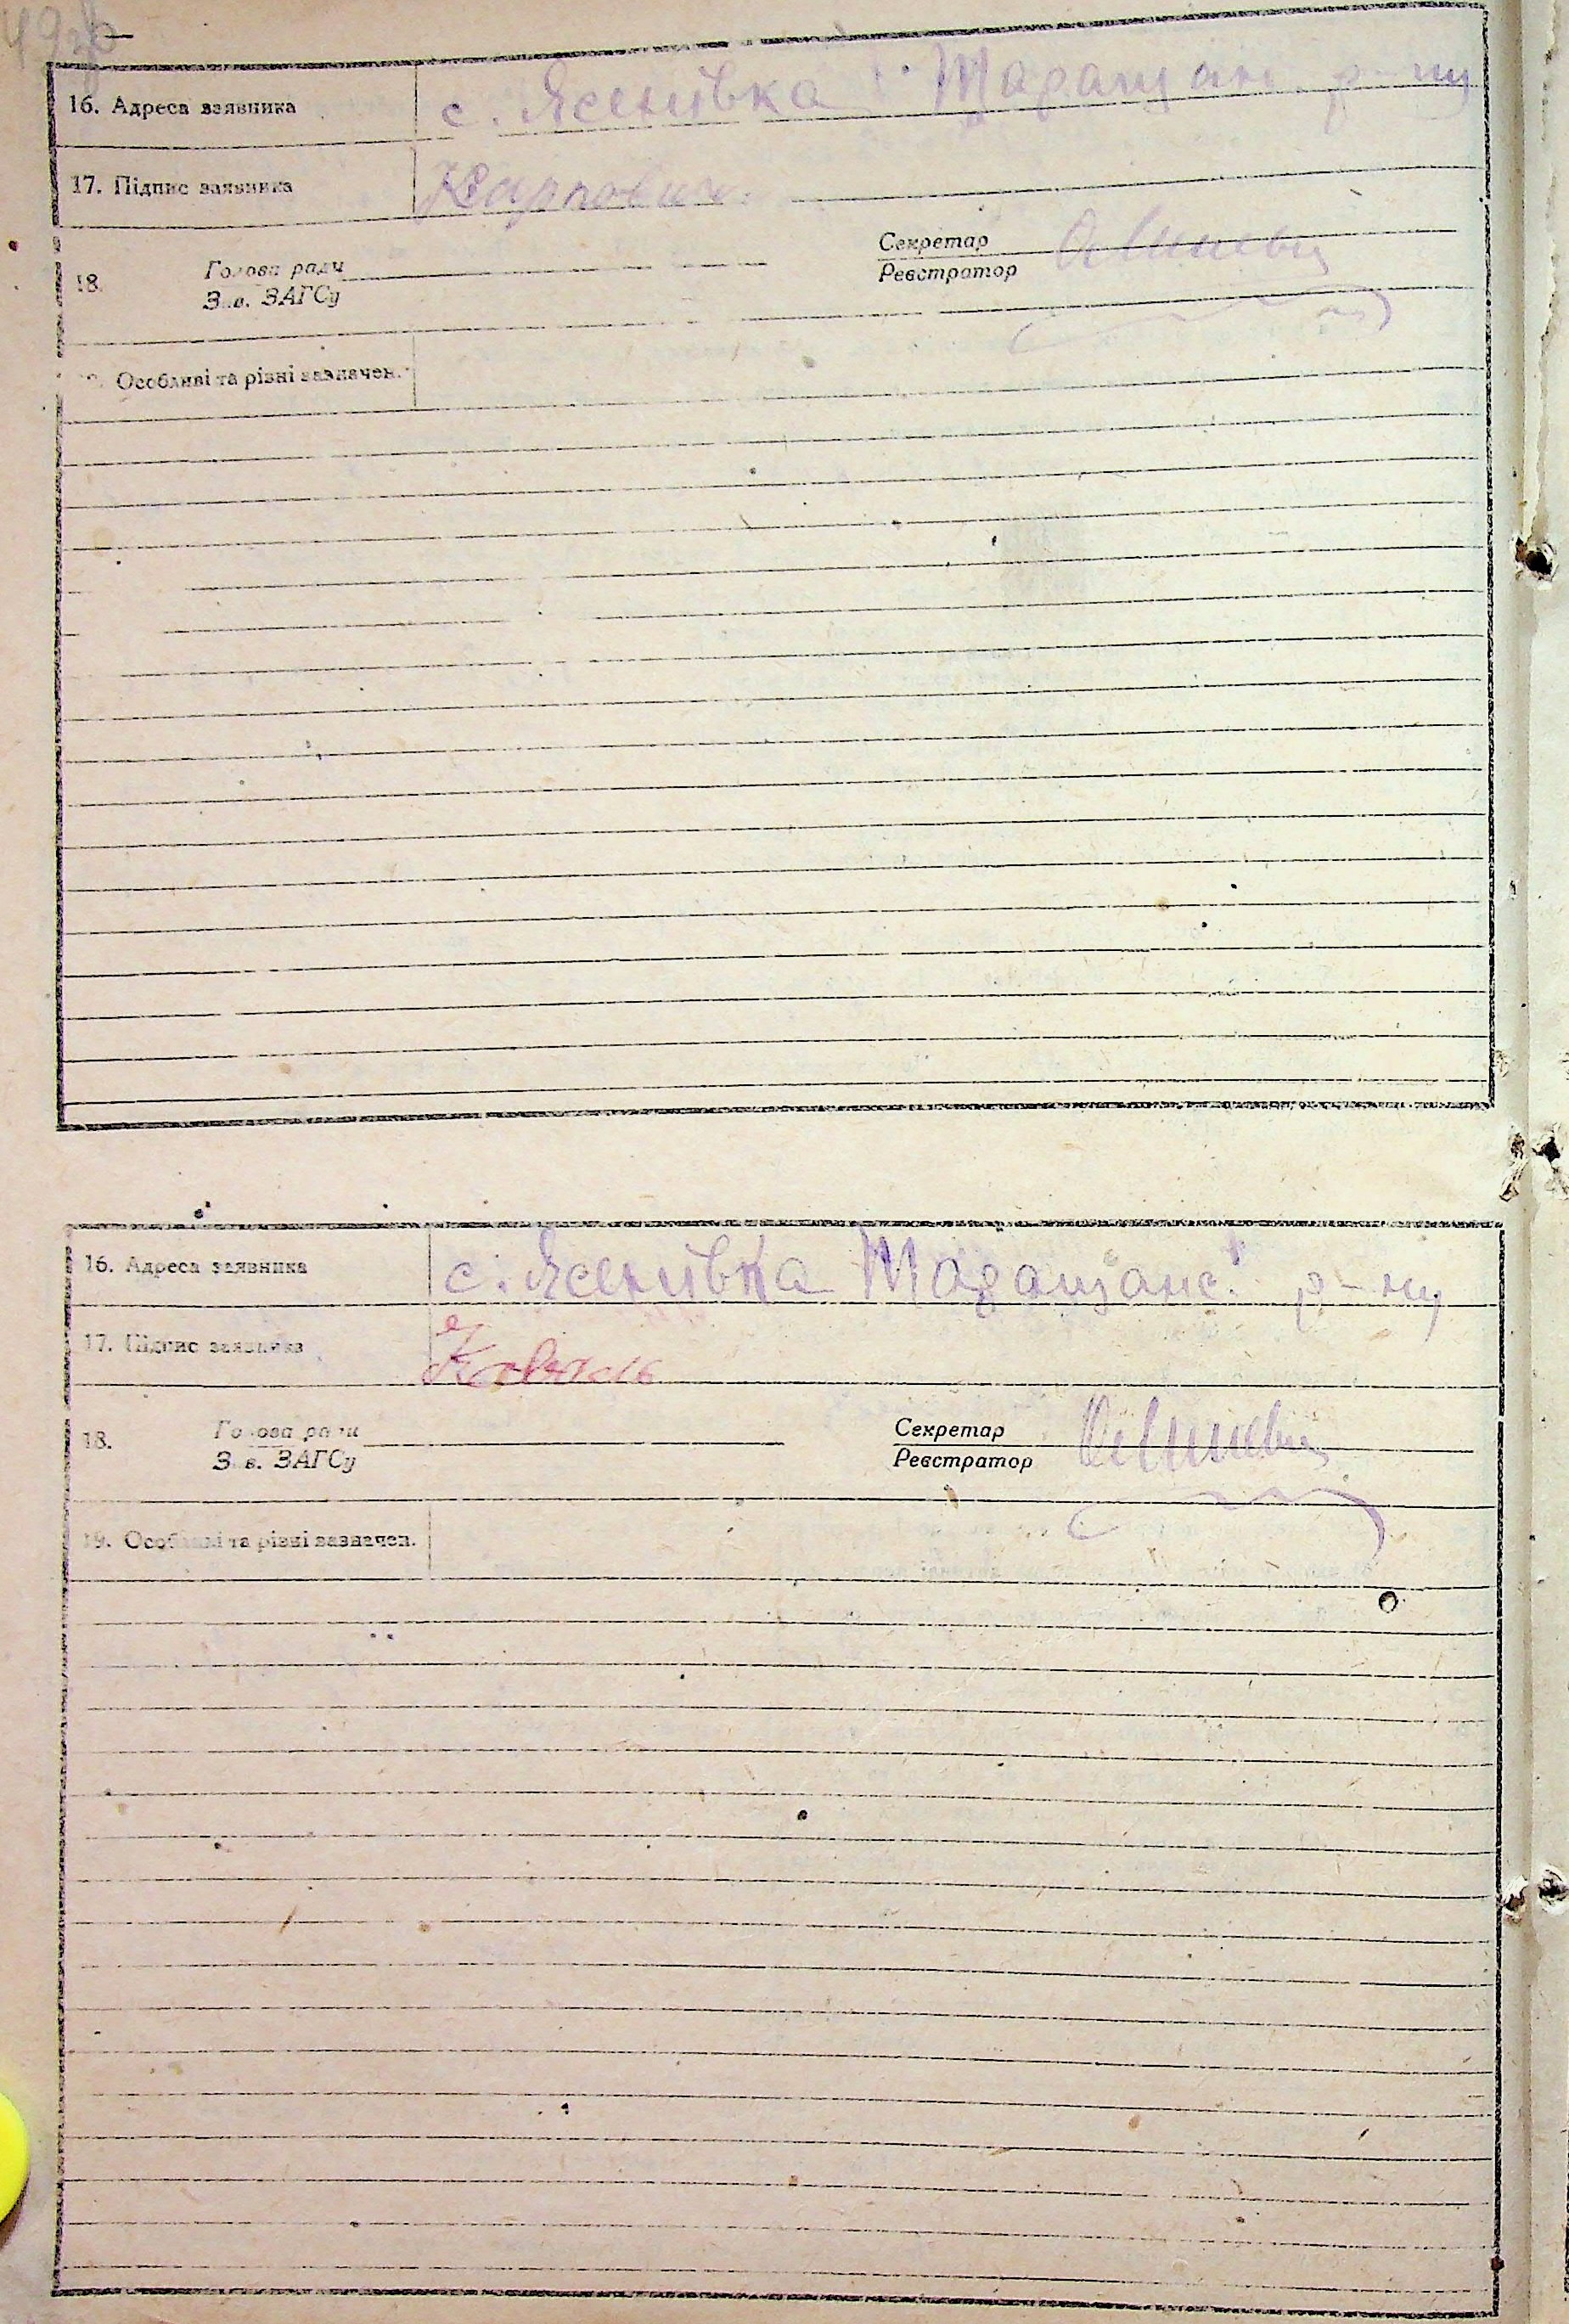 16. Адреса заявника с. Ясенівка Таращан. р-ну
17. Підпис заявника Карпович.
18. Голова ради Секретар
Зав. ЗАГСу Реєстратор
Особливі та різні зазначен.
16. Адреса заявника с. Ясенівка Таращанс. р-ну
17. Підпис заявника
18. Голова ради Секретар
Зав. ЗАГСу Реєстратор
19. Особливі та різні зазначен.